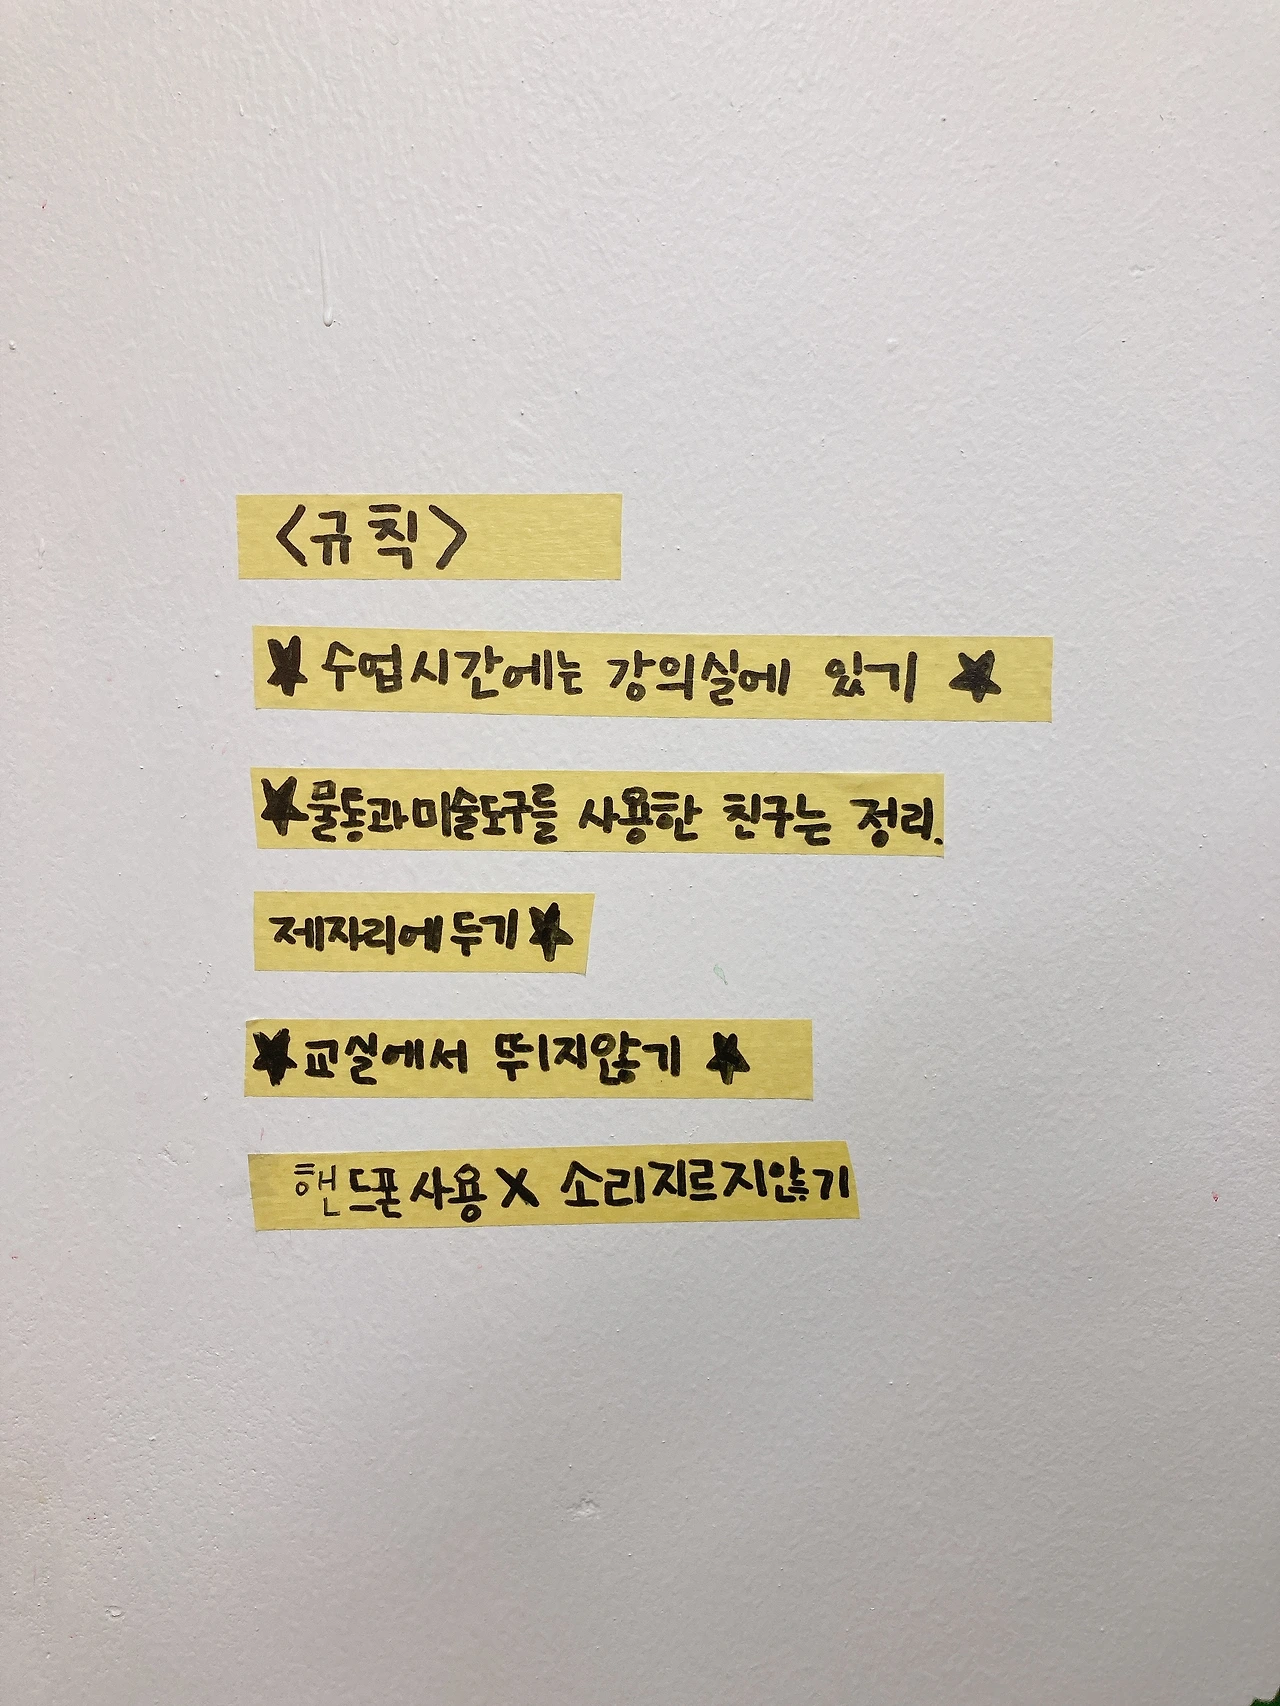 <규칙>
★ 수업시간에는 강의실에 있기 ★
★물통과미술도구를 사용한 친구는 정리.
제자리에두기★
★교실에서 뛰지않기 ★
핸드폰사용X 소리지르지않기